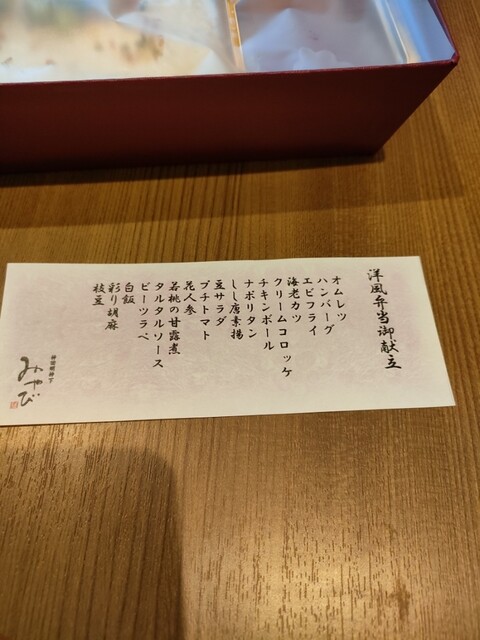 洋風弁当御献立
オムレツ
ハンバーグ
エビフライ
海老カツ
クリームコロッケ
チキンボール
ナポリタン
しし唐素揚
豆サラダ
プチトマト
花人参
若桃の甘露煮
タルタルソース
ビーツラペ
白飯
彩り胡麻
枝豆
神田明神下
みやび